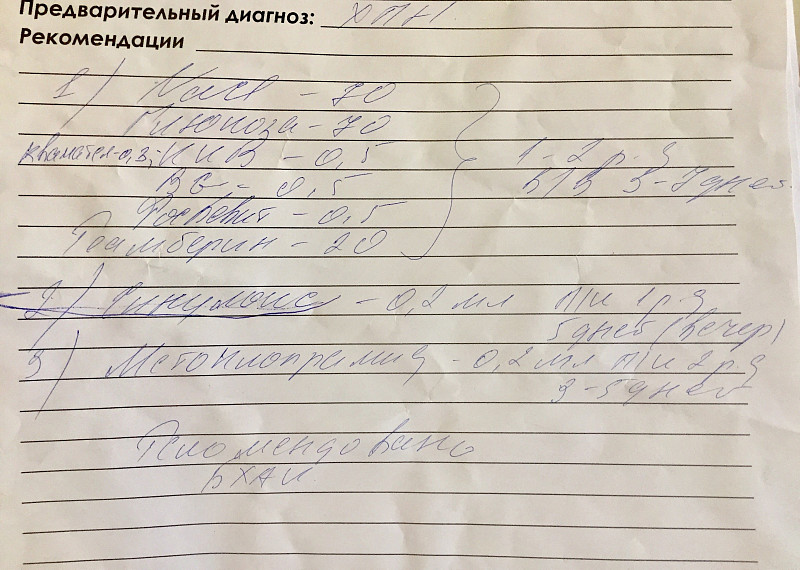 Предварительный диагноз: ХПН.
Рекомендации
1) NaCl - 70
Глюкоза - 70
квамател-0,3; ККВ - 0,5
В6 - 0,5
- 0,5
Реамберин - 20
1-2 р.д
в/в 3-7 дней.
2) - 0,2 мл п/к 1 р.д
5 дней (вечер)
3) Метоклопрамид - 0,2 мл п/к 2 р.д
3-5 дней
Рекомендовано
БХАК